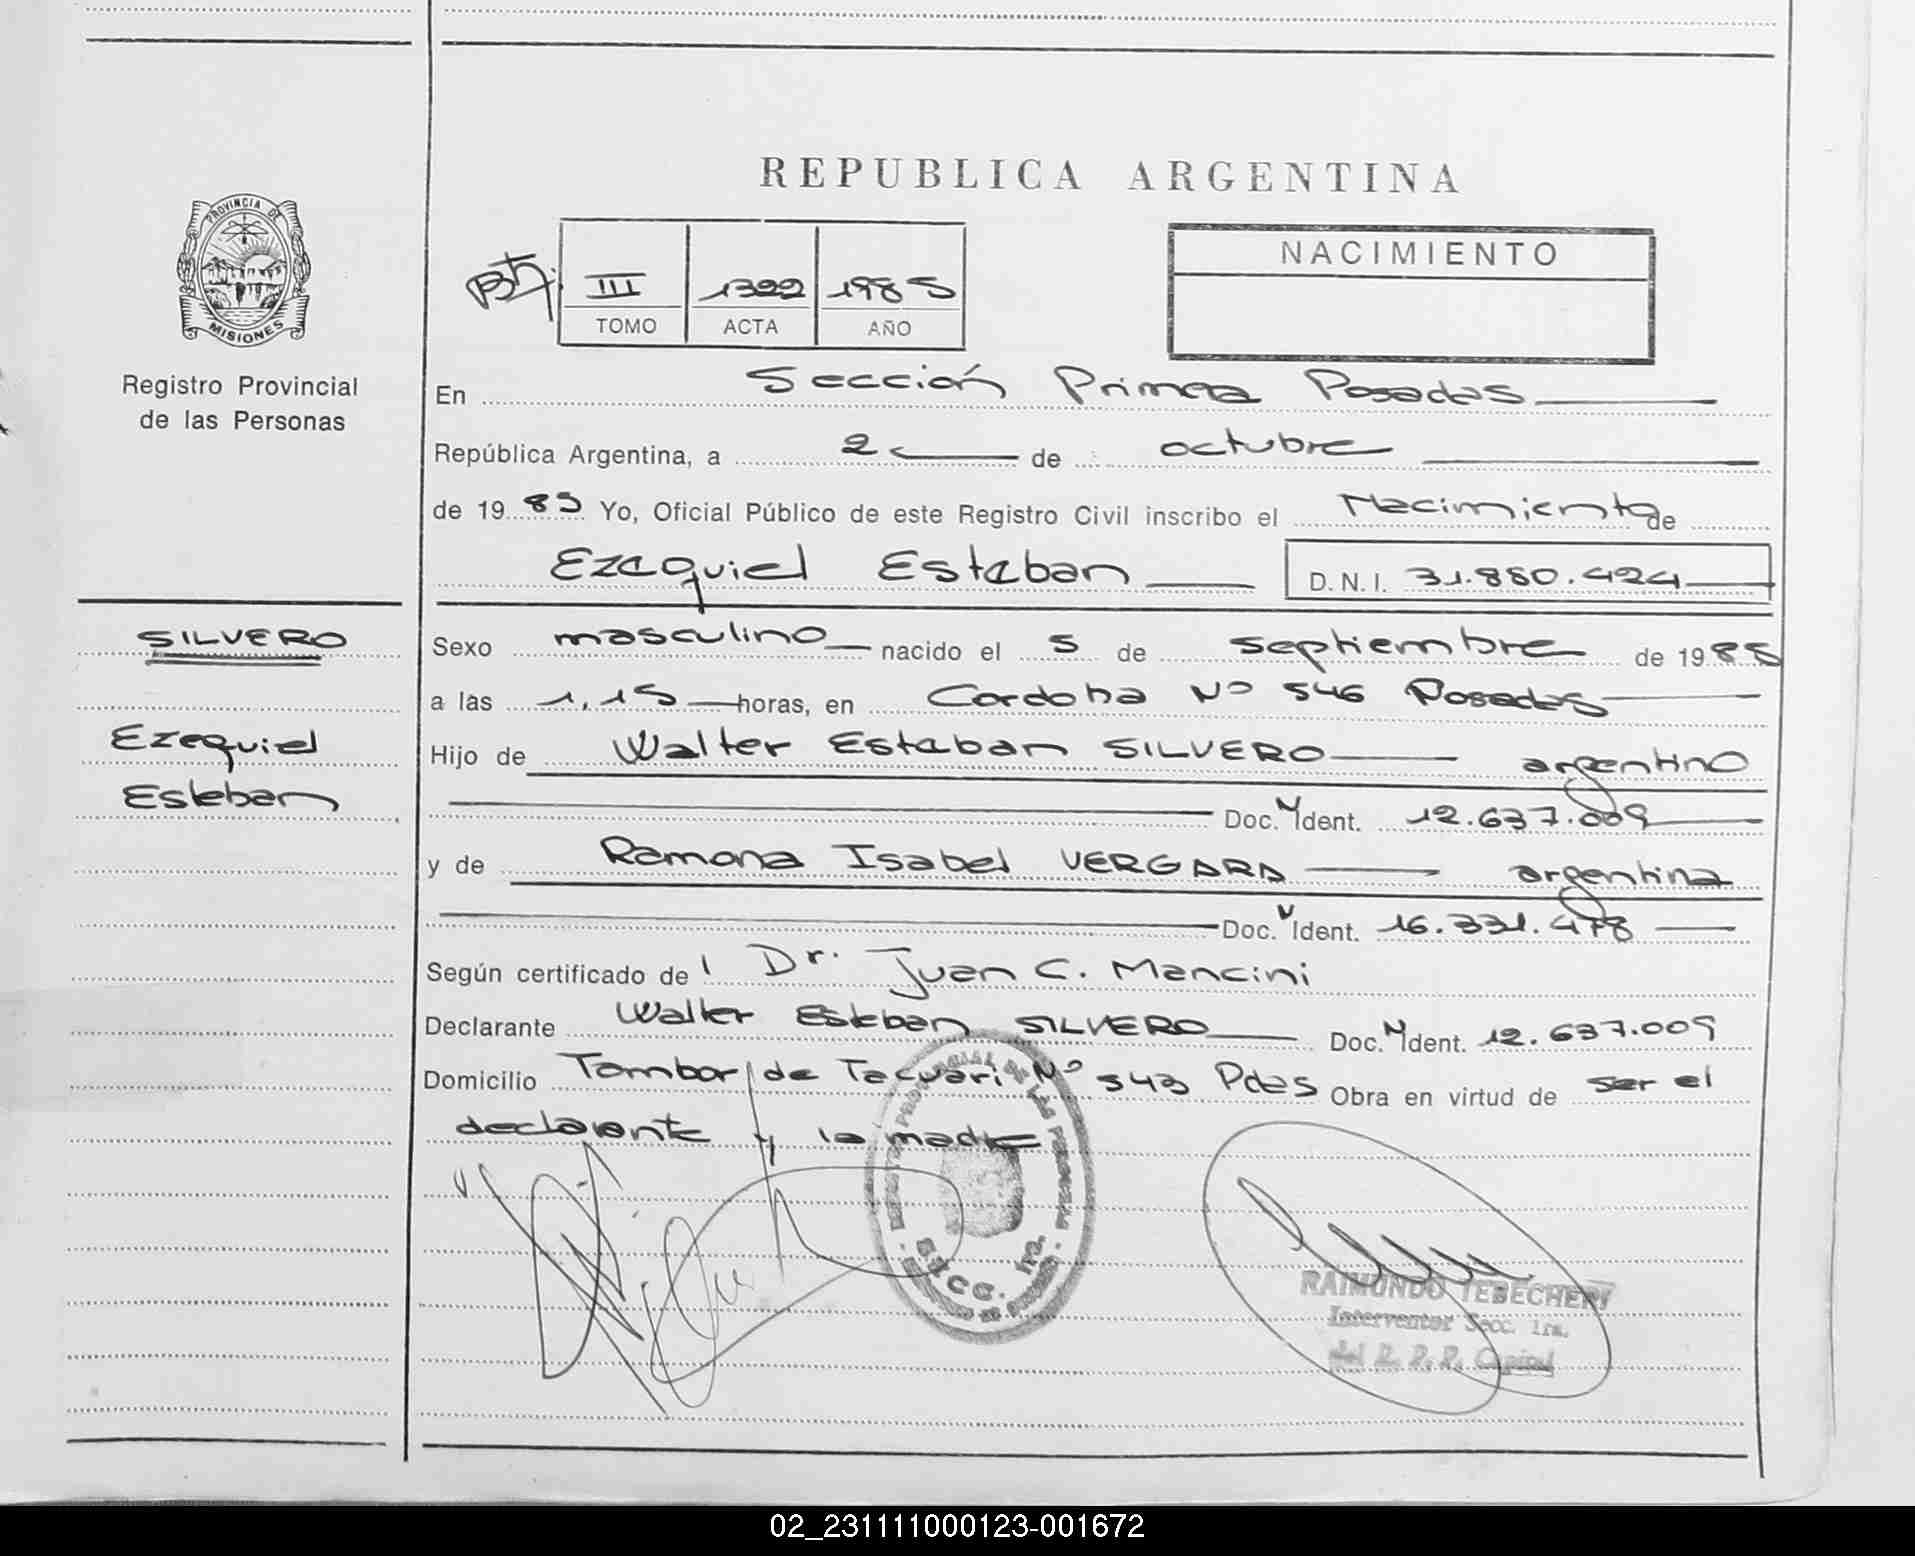 REPUBLICA ARGENTINA
PROVINCIA DE
MISIONES
Registro Provincial
de las Personas
III 1322 1985
TOMO ACTA AÑO
NACIMIENTO
En Sección Primera Posadas
República Argentina, a 2 de octubre
de 1985 Yo, Oficial Público de este Registro Civil inscribo el Nacimiento de
Ezequiel Esteban D.N.I. 31.880.424
SILVERO
Ezequiel
Esteban
Sexo masculino nacido el 5 de septiembre de 1985
a las 1,15 horas, en Cordoba Nº 546 Posadas
Hijo de Walter Esteban SILVERO argentino
Doc. N Ident. 12.637.009
y de Ramona Isabel VERGARA argentina
Doc. Ident. 16.331.478
Según certificado de Dr. Juan C. Mancini
Declarante Walter Esteban SILVERO Doc. N Ident. 12.637.009
Domicilio Tambor de Tacuari Nº 543 Pdas Obra en virtud de ser el
declarante y la madre
Secc. 1ra.
RAIMUNDO TEBECHERI
Interventor Secc. 1ra.
del R. P. P. Capital
02_231111000123-001672